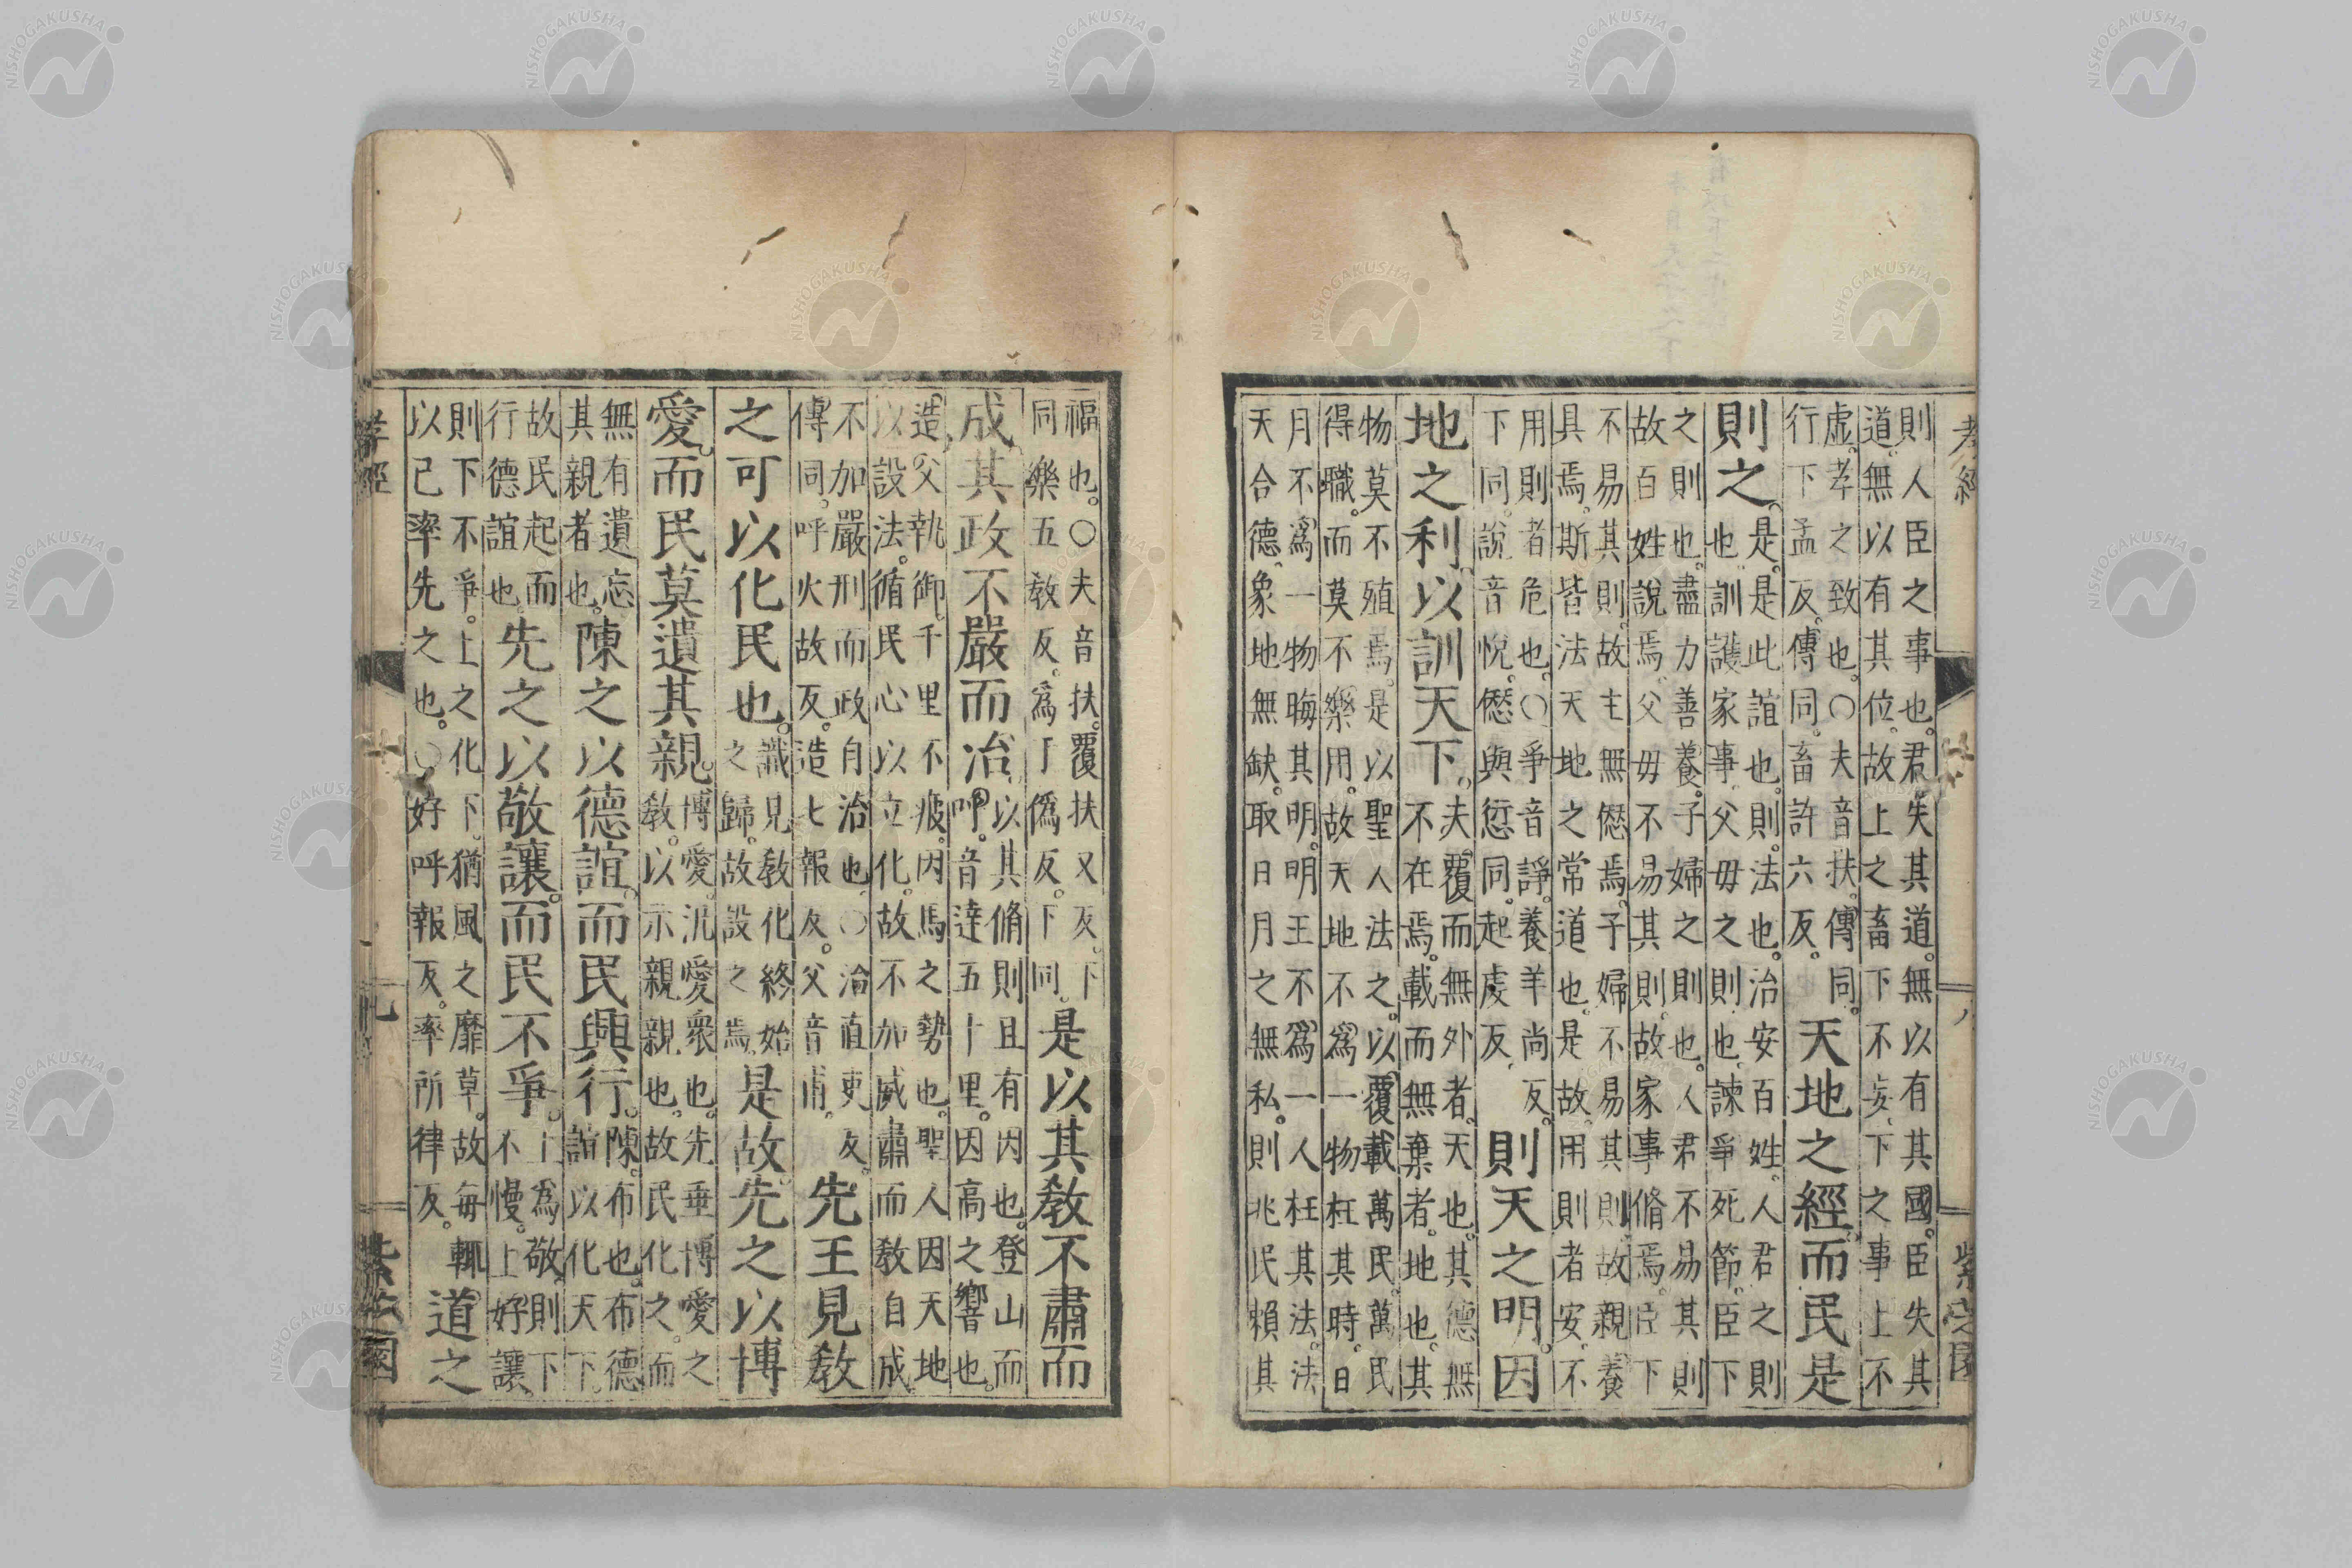 孝經 八 紫芝園
則人臣之事也。君失其道。無以有其國。臣失其
道。無以有其位。故上之畜下不妄。下之事上不
虛。孝之致也。○夫音扶。傳同。
行下孟反。傳同。畜許六反。
天地之經。而民是
則之。
是。是此誼也。則。法也。治安百姓。人君之則
也。訓護家事。父母之則也。諫爭死節。臣下
之則也。盡力善養。子婦之則也。人君不易其則
故百姓說焉。父母不易其則。故家事脩焉。臣下
不易其則。故主無僁焉。子婦不易其則。故親養
具焉。斯皆法天地之常道也。是故用則者安。不
用則者危也。○爭音諍。養羊尚反。
下同。說音悅。僁與愆同。起虔反。
則天之明。因
地之利。以訓天下。
夫覆而無外者。天也。其德無
不在焉。載而無棄者。地也。其
物莫不殖焉。是以聖人法之。以覆載萬民。萬民
得職。而莫不樂用。故天地不爲一物枉其時。日
月不爲一物晦其明。明王不爲一人枉其法。法
天合德。象地無缺。取日月之無私。則兆民賴其
福也。○夫音扶。覆扶又反。下
同。樂五敎反。爲于僞反。下同。
是以其敎不肅而
成。其政不嚴而治。
以其脩則且有因也。登山而
呼。音達五十里。因高之響也。
造父執御。千里不疲。因馬之勢也。聖人因天地
以設法。循民心以立化。故不加威肅而敎自成
不加嚴刑而政自治也。○治直吏反。
傳同。呼火故反。造七報反。父音甫。
先王見敎
之可以化民也。
識見敎化終始
之歸。故設之焉。
是故先之以博
愛。而民莫遺其親。
博愛。汎愛衆也。先垂博愛之
敎。以示親親也。故民化之。而
無有遺忘
其親者也。
陳之以德誼。而民興行。
陳。布也。布德
誼以化天下。
故民起而
行德誼也。
先之以敬讓。而民不爭。
上爲敬。則下
不慢。上好讓
則下不爭。上之化下。猶風之靡草。故每輒
以己率先之也。○好呼報反。率所律反。
道之
孝經 九 紫芝園